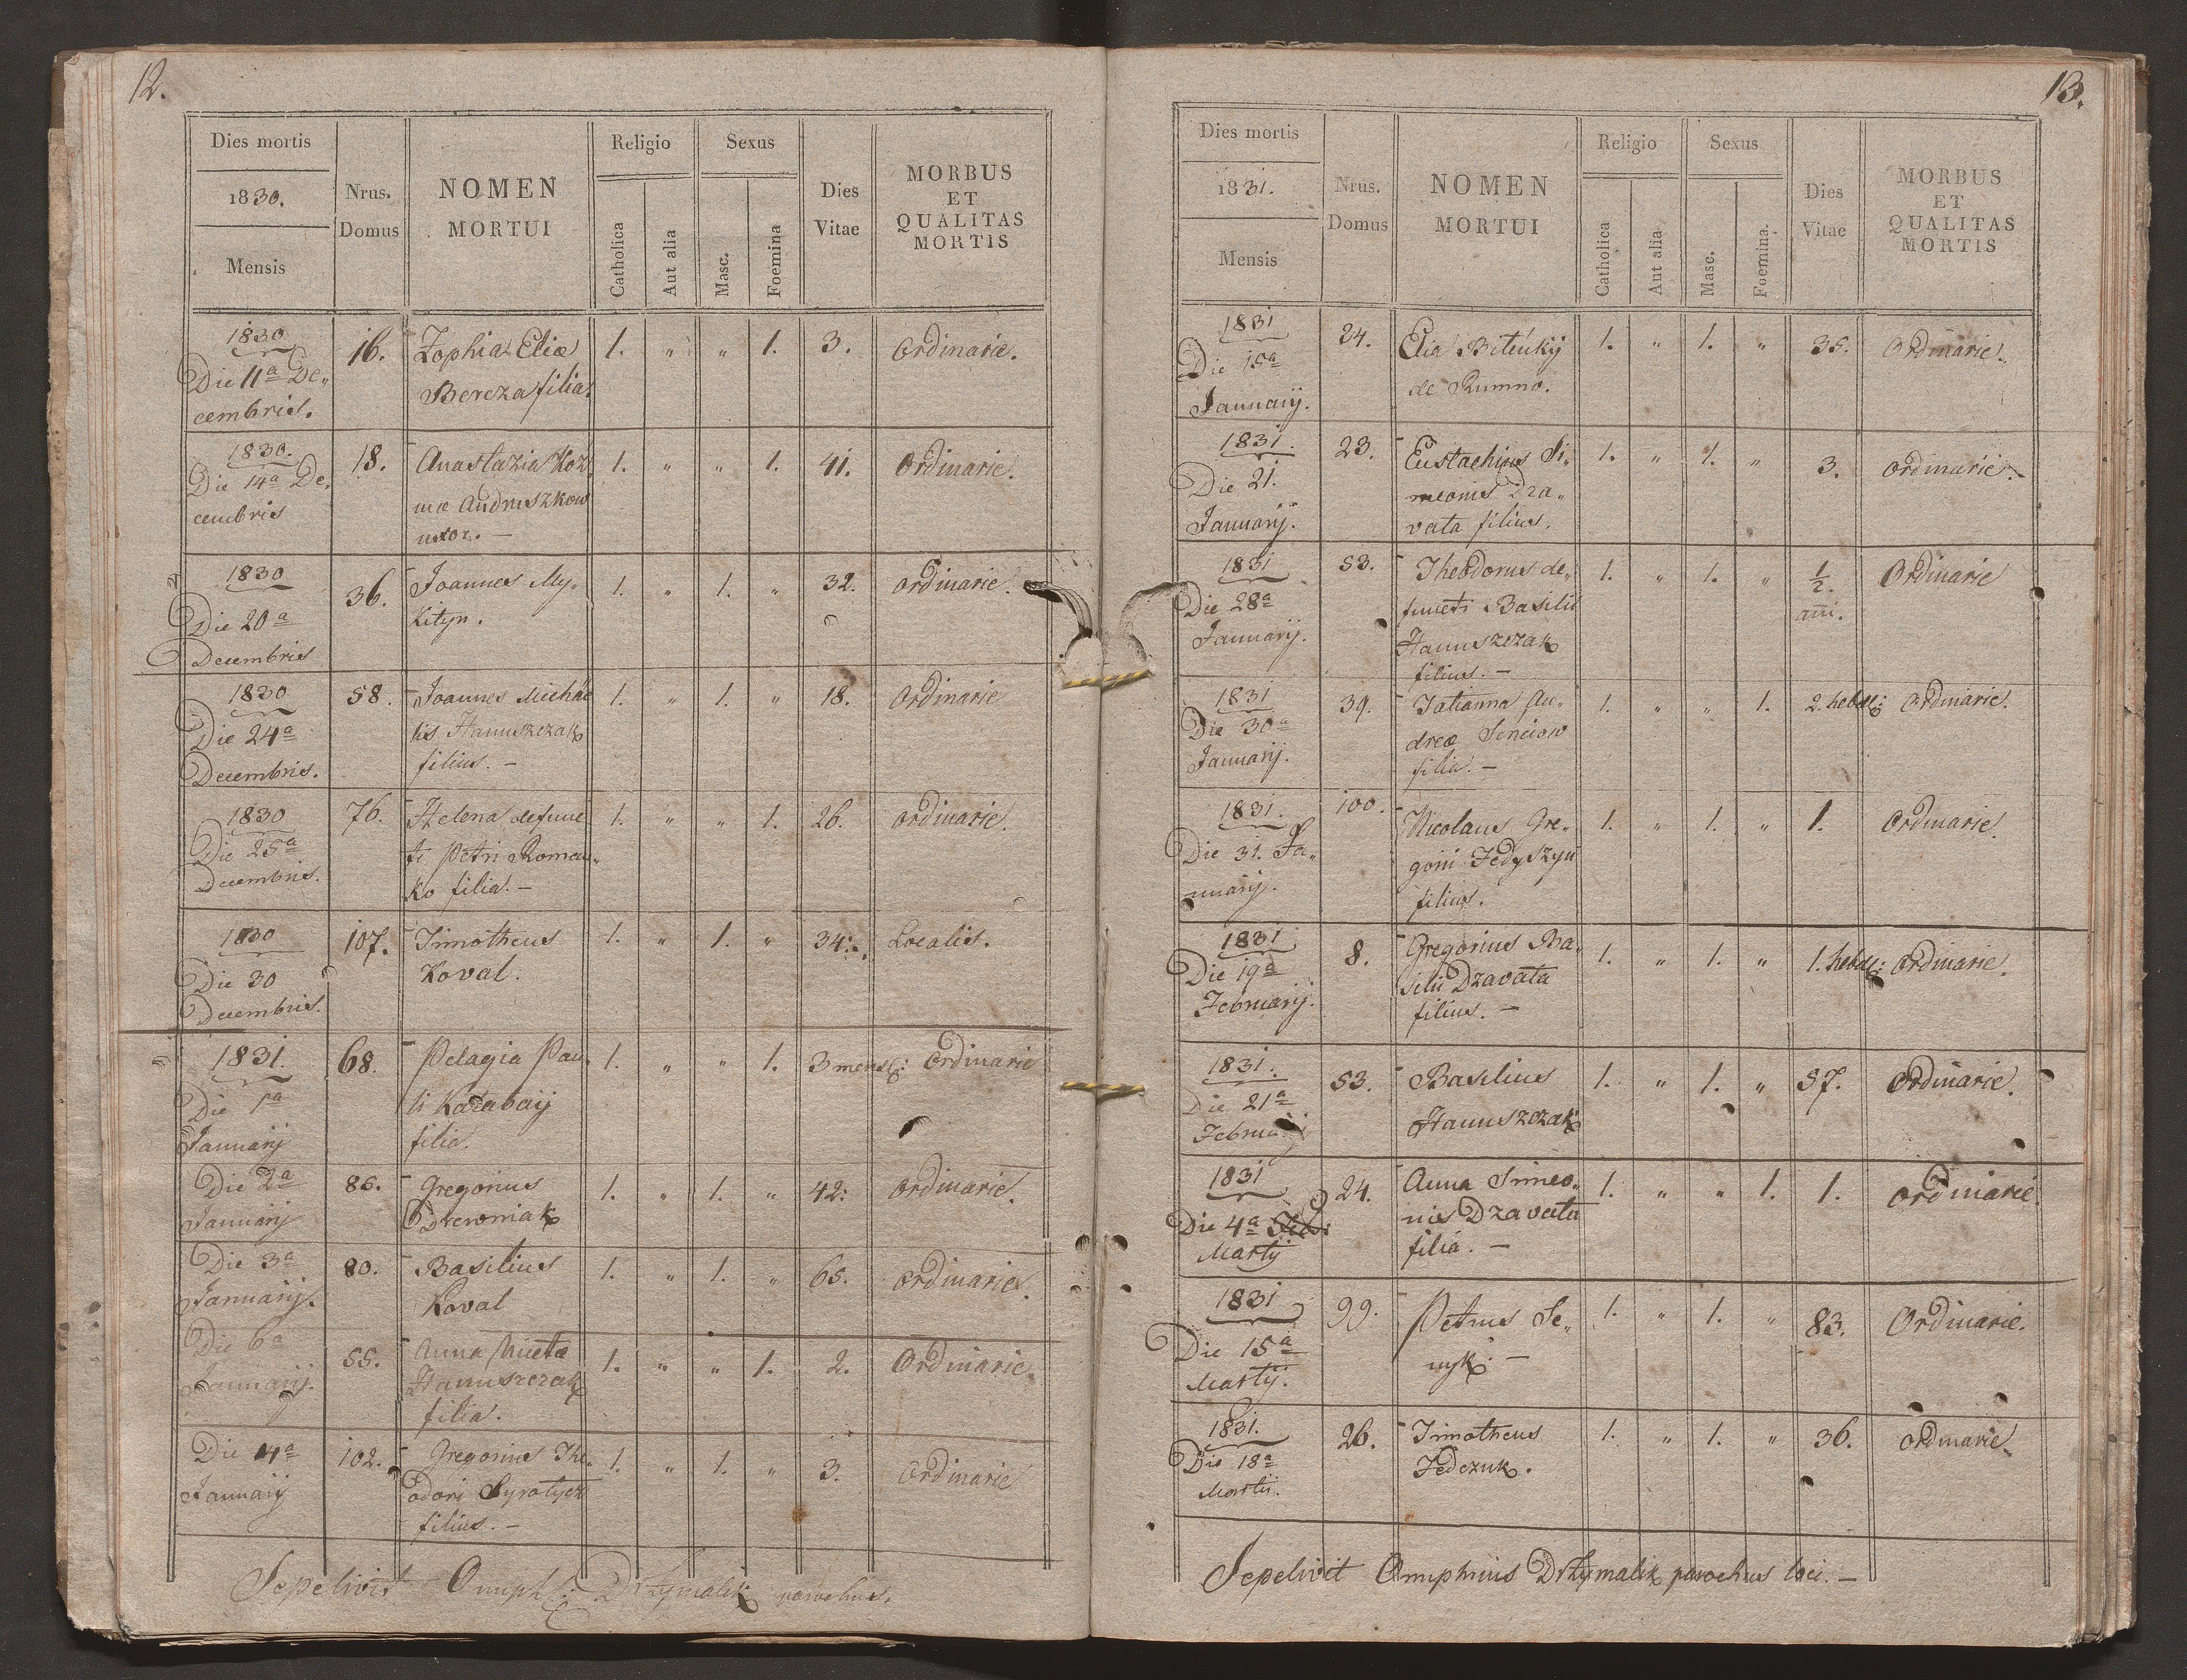 12.
Dies mortis
1830.
Mensis
Nrus.
Domus
NOMEN
MORTUI
Religio
Catholica
Aut alia
Sexus
Masc.
Foemina
Dies
Vitae
MORBUS
ET
QUALITAS
MORTIS
1830 16. Zophia Eliæ 1. " " 1. 3. Ordinarie.
Die 11a De„
cembris. Bereza filia.
1830. 18. Anastazia Koz 1. " " 1. 41. Ordinarie.
Die 14a De„ mæ Andruszkow
cembris uxor. —
1830 36. Joannes My„ 1. " 1. " 32. Ordinarie.
Die 20a Kityn.
Decembris
1830 58. Joannes Michae 1. " 1. " 18. Ordinarie
Die 24a lis Hanuszczak
Decembris. filius. —
1830 76. Helena defunc 1. " " 1. 26. Ordinarie.
Die 25a ti Petri Roman„
Decembris. ko filia. —
1830 107. Timotheus 1. " 1. " 34. Localis.
Die 30 Koval.
Decembris.
1831. 68. Pelagia Pau„ 1. " " 1. 3 mens: Ordinarie
Die 1a li Karabaij
Januarij filia.
Die 2a 85. Gregorius 1. " 1. " 42: Ordinarie.
Januarij Drewniak
Die 3a 80. Basilius 1. " 1. " 65. Ordinarie.
Januarij. Koval
Die 6a 55. Anna Nicetæ 1. " " 1. 2. Ordinarie.
Januarij. Hanuszczak
filia.
Die 4a 102. Gregorius The„ 1. " 1. " 3. Ordinarie
Januarij odori Syrotycz
filius. —
Sepelivit Onuph: Drżymalik parochus.
13.
Dies mortis
1831.
Mensis
Nrus.
Domus
NOMEN
MORTUI
Religio
Catholica
Aut alia
Sexus
Masc.
Foemina.
Dies
Vitae
MORBUS
ET
QUALITAS
MORTIS
1831 24. Elia 1. " 1. " 35. Ordinarie.
Die 15a de Rumno.
Januarij.
1831. 23. Eustachius Si„ 1. " 1. " 3. Ordinarie.
Die 21. meonis Dza„
Januarij. vata filius.
1831 53. Theodorus de„ 1. " 1. " 1/2. Ordinarie
Die 28a functi Basilii añi.
Januarij. Hanuszczak
filius. —
1831 39. Tatianna An„ 1. " " 1. 2. hebd: Ordinarie.
Die 30a dreæ Senciow
Januarij. filia. —
1831. 100. Nicolaus Gre„ 1. " 1. " 1. Ordinarie.
Die 31. Ja„ gorii Fedyszyn
nuarij. filius.
1831 8. Gregorius Ba„ 1. " 1. " 1. hebd: Ordinarie.
Die 19a silii Dzavata
Februarij. filius. —
1831. 53. Basilius 1. " 1. " 57. Ordinarie.
Die 21a Hanuszczak
Februarij
1831 24. Anna Simeo„ 1. " " 1. 1. Ordinarie
Die 4a nis Dzavata
Martij filia. —
1831 99. Petrus Se„ 1. " 1. " 83. Ordinarie.
Die 15a nyk. —
Martij.
1831. 26. Timotheus 1. " 1. " 36. Ordinarie.
Die 18a Fedczuk.
Martii.
Sepelivit Onuphrius Drżymalik parochus loci. —